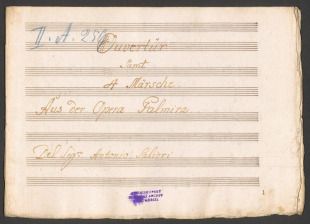 II. A. 256
Ouvertür
Samt
4 Märsche
Aus der Opera Palmira
Del Sigr Antonio Salieri
1